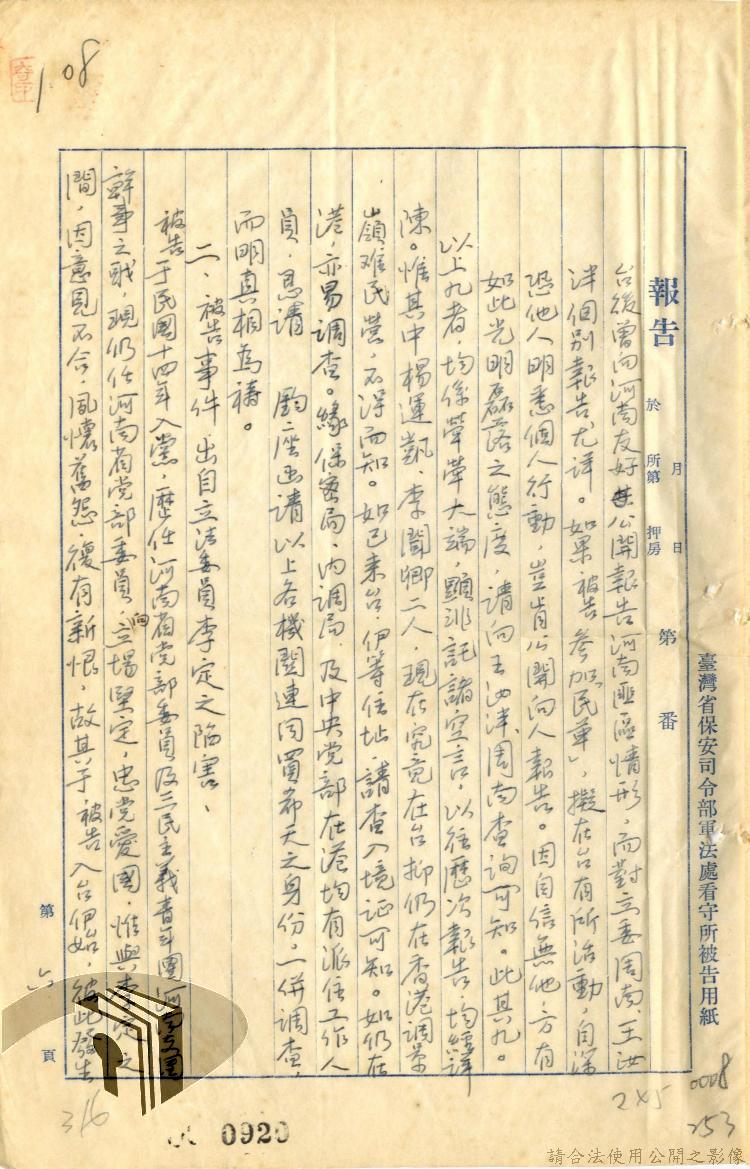 108
臺灣省保安司令部軍法處看守所被告用紙
報告 於 月 日 所第 押房 第 番
台後曾向河南友好公開報告河南匪區情形,而對立委周南、王汝
泮個別報告尤詳。如果被告參加「民革」,擬在台有所活動,自深
恐他人明悉個人行動,豈肯公開向人報告。因自信無他,方有
如此光明磊落之態度,請向王汝泮、周南查詢可知。此其九。
以上九者,均係犖犖大端,顯非託諸空言,以往歷次報告,均經詳
陳。惟其中楊運凱、李聞卿二人,現在究竟在台抑仍在香港調景
嶺难民營,不得而知。如已來台,伊等住址,請查入境証可知。如仍在
港,亦易調查。緣保密局、內調局、及中央党部在港均有派住工作人
員,恳請 鈞座函請以上各機關連同買希天之身份,一併調查,
而明真相為禱。
二、被告事件 出自立法委員李定之陷害、
被告于民國十四年入黨,歷任河南省党部委員及三民主義青年團河南支團
幹事之職,現仍任河南省党部委員,向立場堅定,忠党愛國,惟與李定之
間,因意見不合,夙懷舊怨,復有新恨,故其于被告入台伊始,彼此發生
第 六 頁
0008
2×5
253
316
0920
請合法使用公開之影像